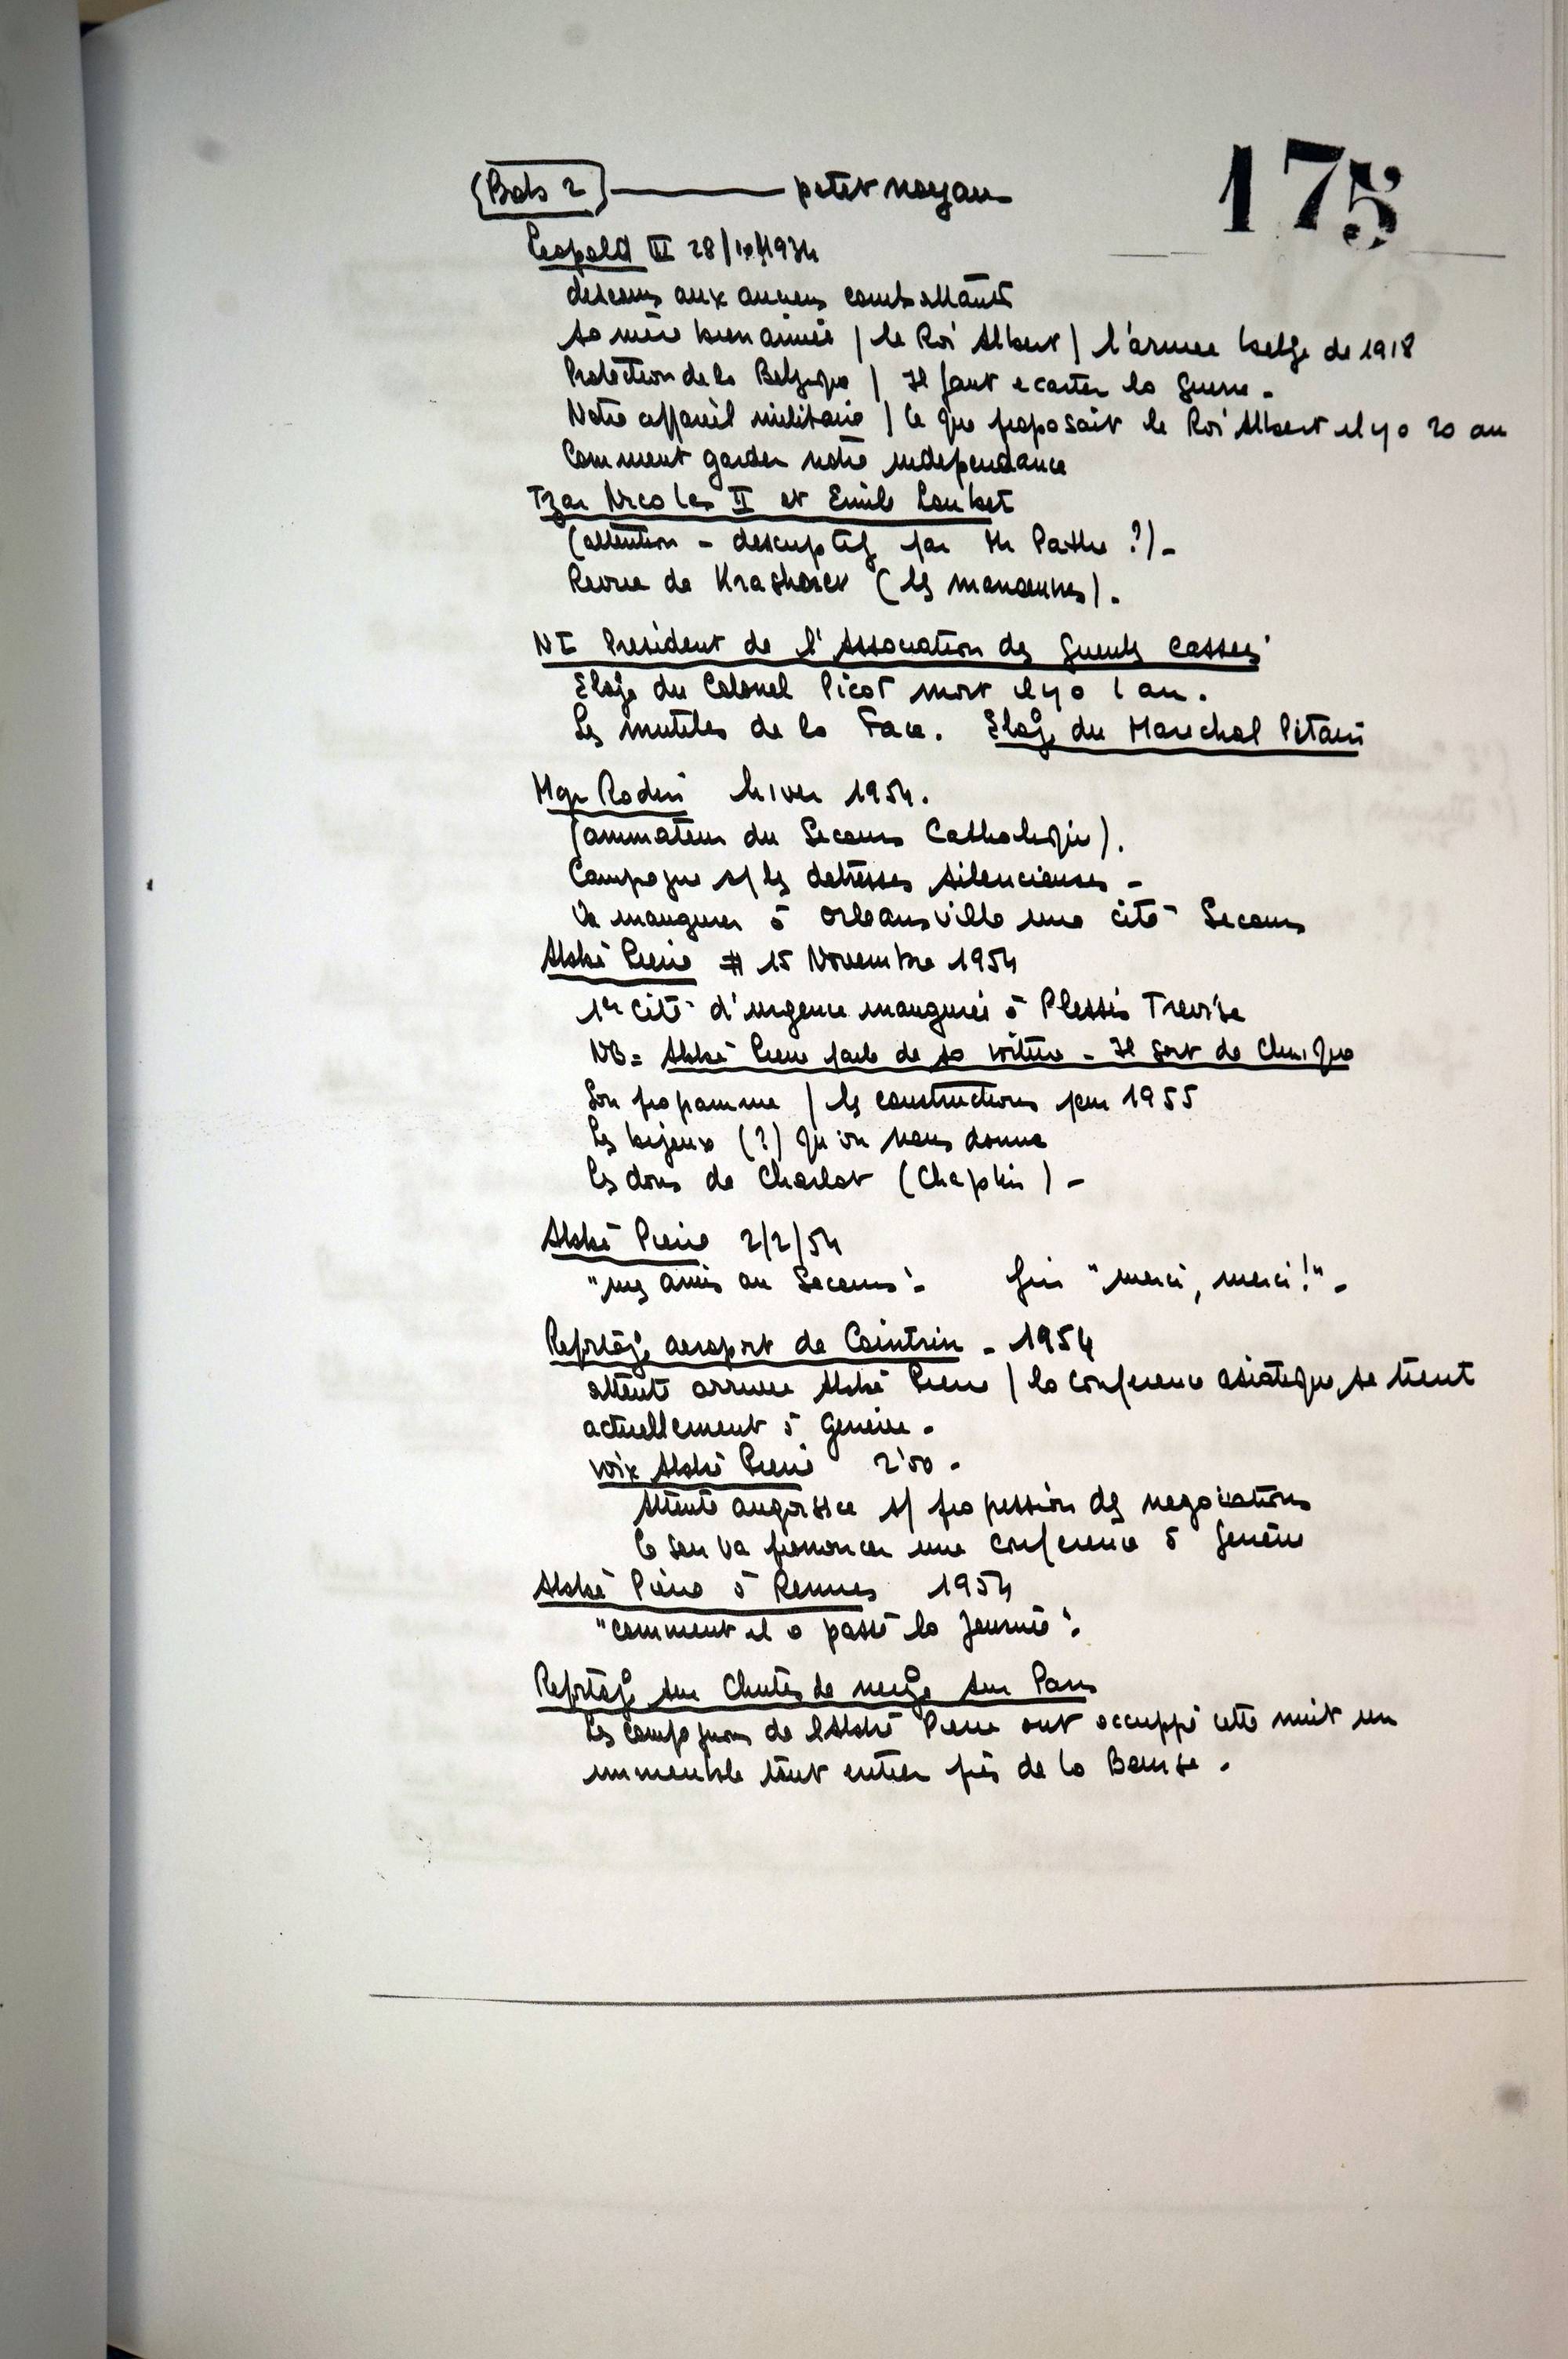 175
Bob 2 petit noyau
Leopold III 28/10/1934
discours aux anciens combattants
sa mère bien aimée / le Roi Albert / l'armee belge de 1918
Protection de la Belgique / Il faut ecarter la guerre -
Notre appareil militaire / Ce que proposait le Roi Albert il y a 20 an
Comment garder notre independance
Tzar Nicolas II et Emile Loubet
(attention - descriptif par Mr Pathe ?) -
Revue de (les manoeuvres).
NI President de l'Association des Gueules Cassees
Eloge du Colonel Picot mort il y a 1 an.
Les mutiles de la Face. Eloge du Marechal Pétain
Mgr Rodhin hiver 1954.
(animateur du Secours Catholique).
Campagne s/ les detresses silencieuses -
Va inaugurer à Orleansville une cité Secours
Abbé Pierre # 15 Novembre 1954
1er cité d'urgence inaugurée à Plessis Trevise
NB = Abbé Pierre parle de sa voiture - Il sort de Clinique
Son programme / les constructions pour 1955
Les bijoux (?) qu'on nous donne
Les dons de Charlot (Chaplin) -
Abbé Pierre 2/2/54
"mes amis au Secours". fin "merci, merci!" -
Reportage aeroport de Cointrin - 1954
attente arrivee Abbé Pierre / la conference asiatique se tient
actuellement à Geneve -
voix Abbé Pierre 2'00 -
Attente angoissee s/ progression des negociations
Ce soir va prononcer une conference à Genève
Abbé Pierre à Rennes 1954
"comment il a passé la journée".
Reportage sur Chutes de neige sur Paris
Les compagnons de l'Abbé Pierre ont occuppé cette nuit un
immeuble tout entier près de la Bourse.